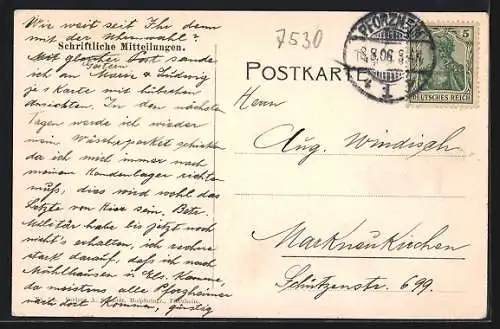 Wie weit seit Ihr denn
mit der Uhrenwahl?
Schriftliche Mitteilungen.
Mit gleicher Post sende
gestern
ich an Marie & Ludwig
je 1 Karte mit hübschen
Ansichten. In den nächsten
Tagen werde ich wieder
mein Wäschepaket schicken
da ich mich immer nach
meinem Hemdenlager richten
muß. dies wird wohl das
Letzte von hier sein. Betr.
Militär habe bis jetzt noch
nicht's erhalten, ich rechne
stark darauf, daß ich nach
Mühlhausen i. Els. komme,
da meistens alle Pforzheimer
nach dort komm,
7530
POSTKARTE
PFORZHEIM
8.8.06
1
5
DEUTSCHES REICH
Herrn
Aug. Windisch
Markneukirchen
Schützenstr 699.